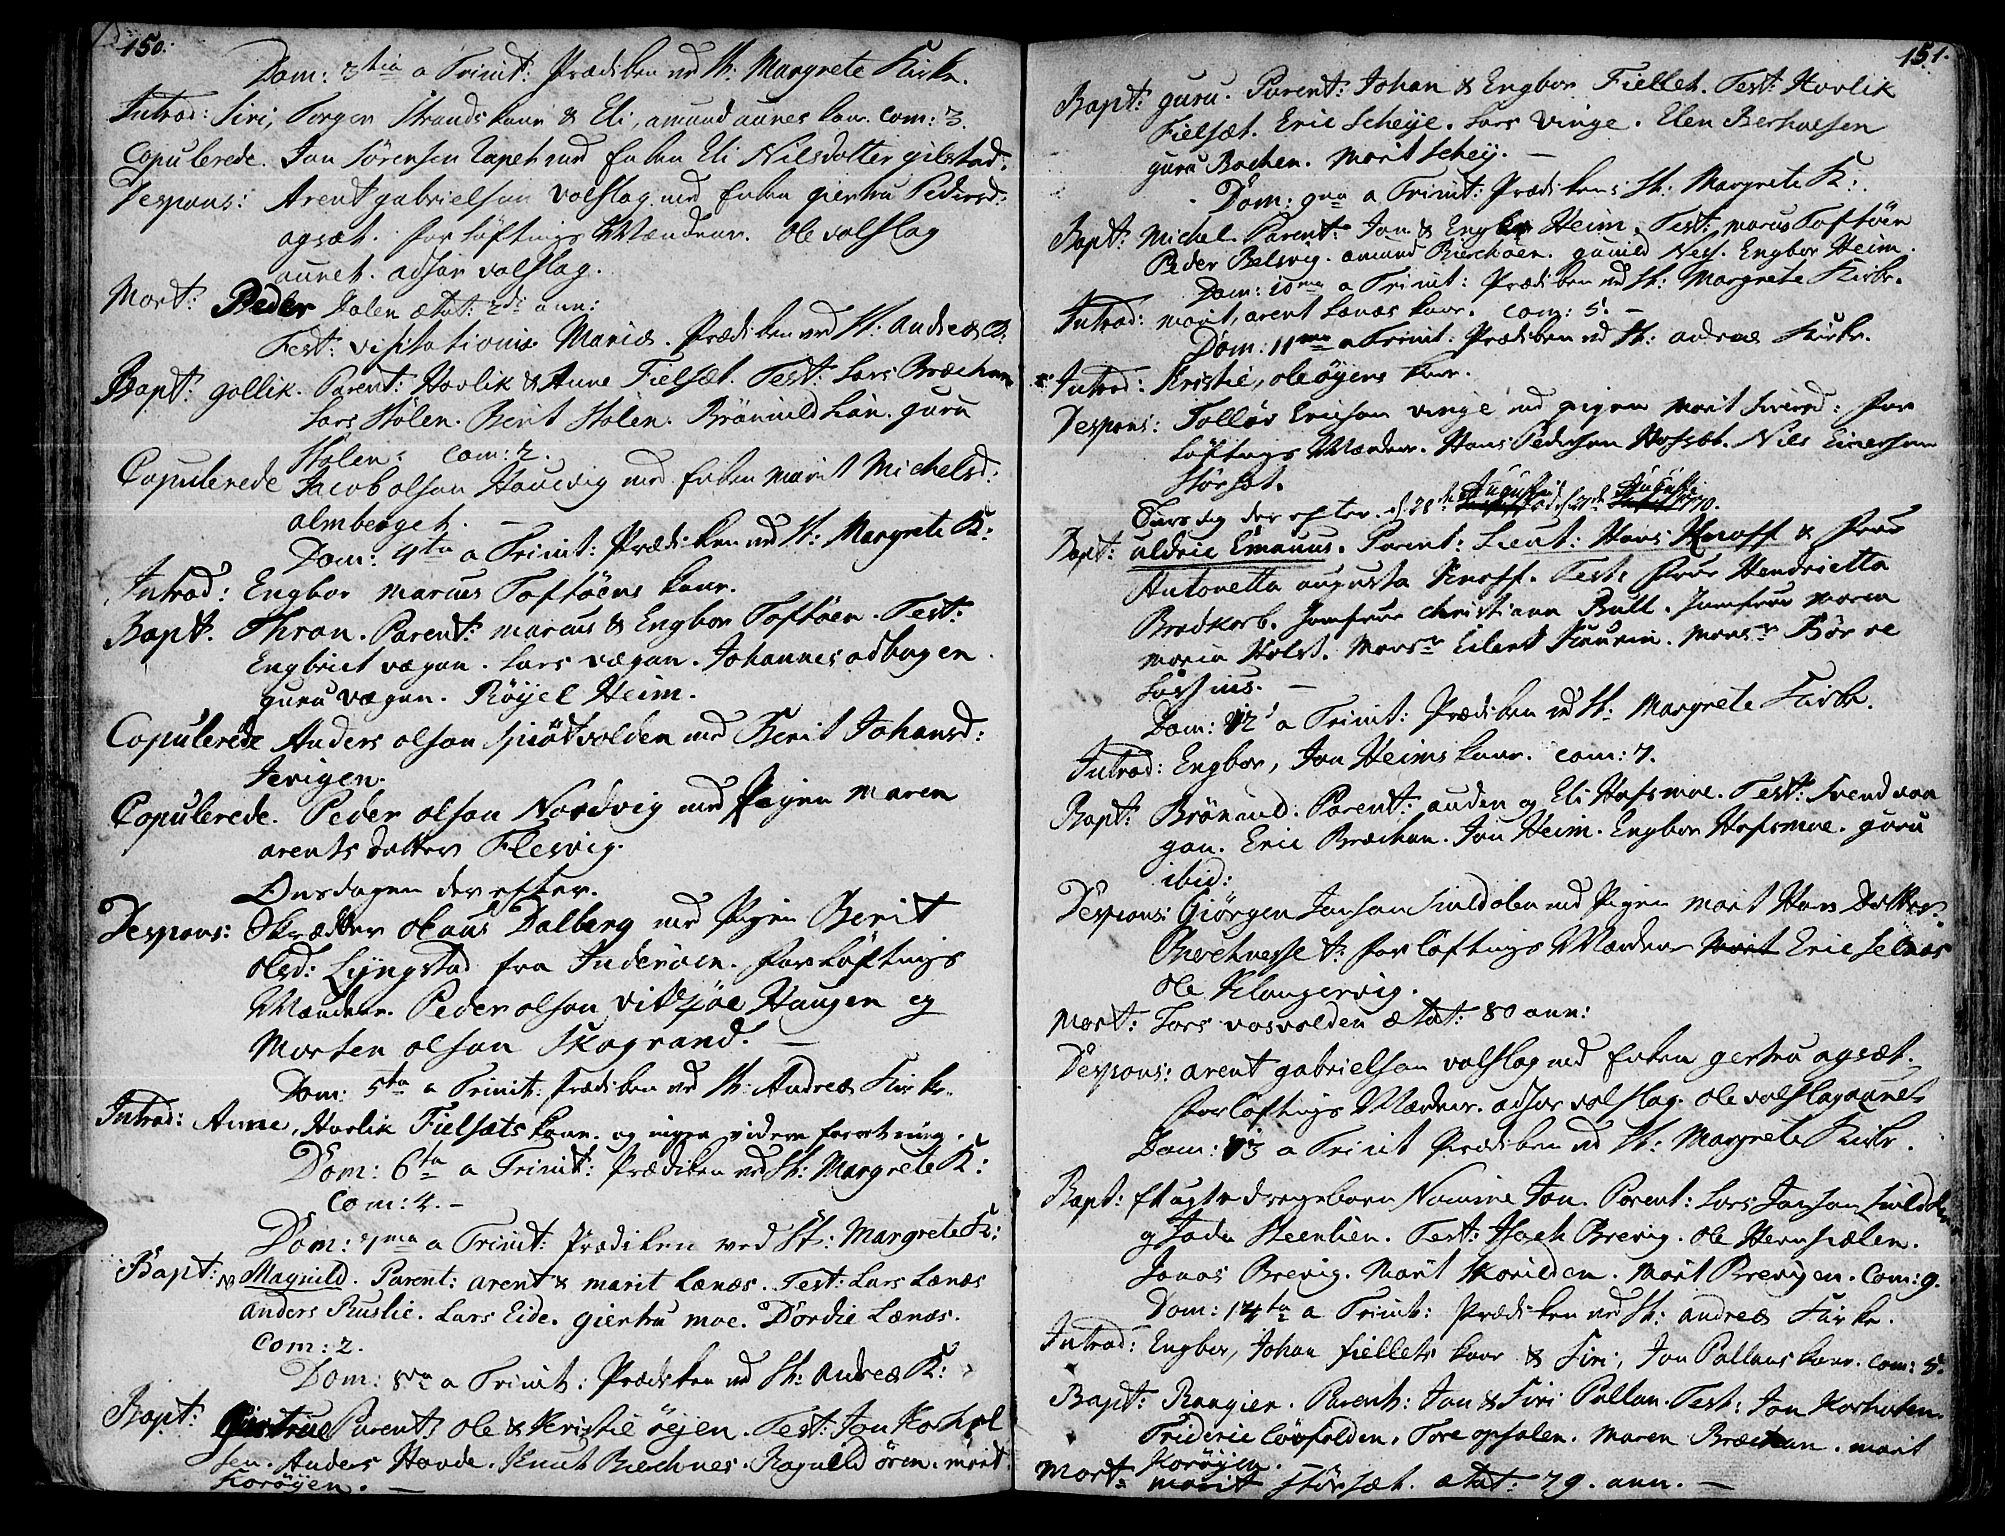 150.
Dom: 3tia a Trinit: Prædiken ved St: Margrete Kirke.
Introd: Siri, Torger Strands kone & Eli, amund aunes kone. Com: 3.
Copulerede. Jon Sørensen Tapet med Enken Eli Nilsdatter gilstad.
Despons: Arent gabrielsen valslag med Enken giertru Pedersd:
agsæt. forløftnings Mændene. Ole valslag
aunet. adsær valslag.
Mort: Peder Dalen ætat: 2di ann:
Fest: visitationis Mariæ. Prædiken ved St: Andreæ K:
Bapt: gollik. Parent: Havlik & Anne Fielsæt. Test: Lars Bræchan
Lars Stølen. Berit Stølen. Brønnild Lian. guru
Stølen. Com: 2.
Copulerede Jacob olsen Haugvig med Enken marit Michelsd:
almberget. —
Dom: 4ta a Trinit: Prædiken ved St: Margrete K:
Introd: Engbor marcus Toftøens kone.
Bapt. Thron. Parent: marcus & Engbor Toftøen. Test:
Engbrict vægan. Lars vægan. Johannes odbugen
guru vægan. Røyel Heim.
Copulerede Anders olsen Spiøtvolden med Berit Johansd:
Jerigen.
Copulerede. Peder olsen Nordvig med Pigen maren
arents datter Flesvig.
Onsdagen der efter.
Despons: Skrædder Olaus Dalberg med Pigen Berit
olsd: Lyngstad fra Inderøen. forløftnings
Mændene. Peder olsen vitsøe Haugen og
Morten olsen Skagrand. —
Dom: 5ta a Trinit: Prædiken ved St: Andreæ Kirke.
Introd: Anne, Havlik Fielsæts kone. og ingen videre forretning.
Dom: 6ta a Trinit: Prædiken ved St: Margrete K:
Com: 4. —
Dom: 7ma a Trinit: Prædiken ved St: Margrete K:
Bapt: NB Magnild. Parent: arent & marit Lænæs. Test: Lars Lænæs
anders Ruslie. Lars Eide. giertru moe. Dordie Lænæs.
Com: 2.
Dom: 8va a Trinit: Prædiken ved St: Andreæ K:
Bapt: Giertrue Parent: Ole & Kristie øyen. Test: Jon Kohol
sen. Anders Hovde. Knut Bechnes. Ragnild ören. marit
Korøyen. —
151.
Bapt: guru. Parent: Johan & Engbor Fiellet. Test: Havlik
Fielsæt. Eric Scheye. Lars vinge. Elen Berhoelsen
guru Bachen. Marit Schey. —
Dom: 9na a Trinit: Prædiken i St: Margrete K:
Bapt: Michel. Parent: Jon & Engbor Heim. Test: marcus Toftöen
Peder Belsvig. amund Kierchøen. gunild Nes. Engbor Heim.
Dom: 10ma a Trinit: Prædiken ved St: Margrete Kirke.
Introd: marit, arent Lænæs kone. Com: 5. —
Dom: 11ma a Trinit: Prædiken ved St: andreæ Kirke.
Introd: Kristie, ole øyens kone.
Despons: Tolløv Ericsen vinge med pigen marit Siversd: for
løftnings Mændene. Hans Pedersen Hofset. Nils Einersen
Størset.
Augusti Augusti
Tirsdag der efter. d. 28de fød d. 27de 1770.
Bapt: uldric Emanus. Parent: Lieut: Hans Knoff & frue
Antonetta augusta Knoff. Test: frue Hendrietta
Bredkorb. Jomfrue christiana Bull. Jomfrue maren
maria Holst. Monsr Eilert Kaurin. Monsr Børre
Lossius. —
Dom: 12 a Trinit: Prædiken ved St: Margrete Kirke.
Introd: Engbor, Jon Heims kone. Com: 7.
Bapt: Brönnild. Parent: auden og Eli Hofsmoe. Test: Svend vaa
gan. Eric Bræchan. Jon Heim. Engbor Hofsmoe. guru
ibid:
Despons: Giørgen Jonsen Suuldalen med Pigen marit Hans datter.
forløftnings Mændene Eric Selnæs
Ole Klungervig.
Mort: Lars vasvolden ætat: 80 ann:
Despons: arent gabrielsen valslag med Enken gertru agsæt.
forløftnings Mændene. adsær valslag. Ole valslagaunet
Dom: 13 a Trinit Prædiken ved St: Margrete Kirke.
Bapt: Et uægte drengebarn Nomine Jon. Parent: Lars Jonsen
Steenlien. Test: Isach Brevig. Ole Hernsiælen.
Jonas Brevig. Marit Skorilden. Marit Brevigen. Com: 9.
Dom: 14ta a Trinit: Prædiken ved St: andreæ Kirke.
Introd: Engbor, Johan fiellets kone & Siri, Jon Pallans kone. Com: 5.
Bapt: Rangier. Parent: Jon & Siri Pallan. Test: Jon Korholen.
Frideric Løvfolden. Tore opsalen. Maren Bræchan. marit
Korøyen.
Mort: marit Størsæt. ætat: 79. ann. —